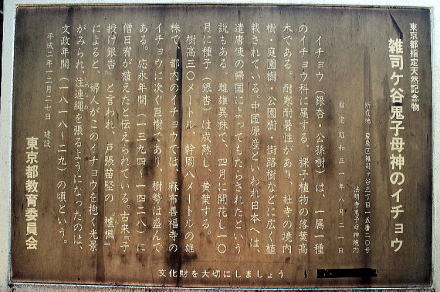 東京都指定天然記念物
雑司ケ谷鬼子母神のイチョウ
所在地 豊島区雑司ケ谷三丁目一五番二〇号
法明寺鬼子母神境内
指定 昭和三一年八月二一日
イチョウ（銀杏・公孫樹）は、一属一種
のイチョウ科に属する。裸子植物の落葉高
木である。耐寒耐暑性があり、社寺の境内
樹・庭園樹・公園樹・街路樹などに広く植
栽されている。中国原産といわれ日本へは、
遣唐使の帰国によってもたらされたという
説もある。雌雄異株で、四月に開花し一〇
月に種子（銀杏）は成熟し、黄葉する。
樹高三〇メートル、幹周八メートルの雄
株で、都内のイチョウでは、麻布善福寺の
イチョウに次ぐ巨樹であり、樹勢は盛んで
ある。応永年間（一三九四〜一四二八）に
僧日宥が植えたと伝えられている。古来「子
授け銀杏」と言われ、戸張苗堅の「櫨楓」
によると、婦人がこのイチョウを抱く光景
がみられ、注連縄を張るようになったのは、
文政年間（一八一八〜二九）の頃という。
平成二年一二月二七日 建設
東京都教育委員会
文化財を大切にしましょう